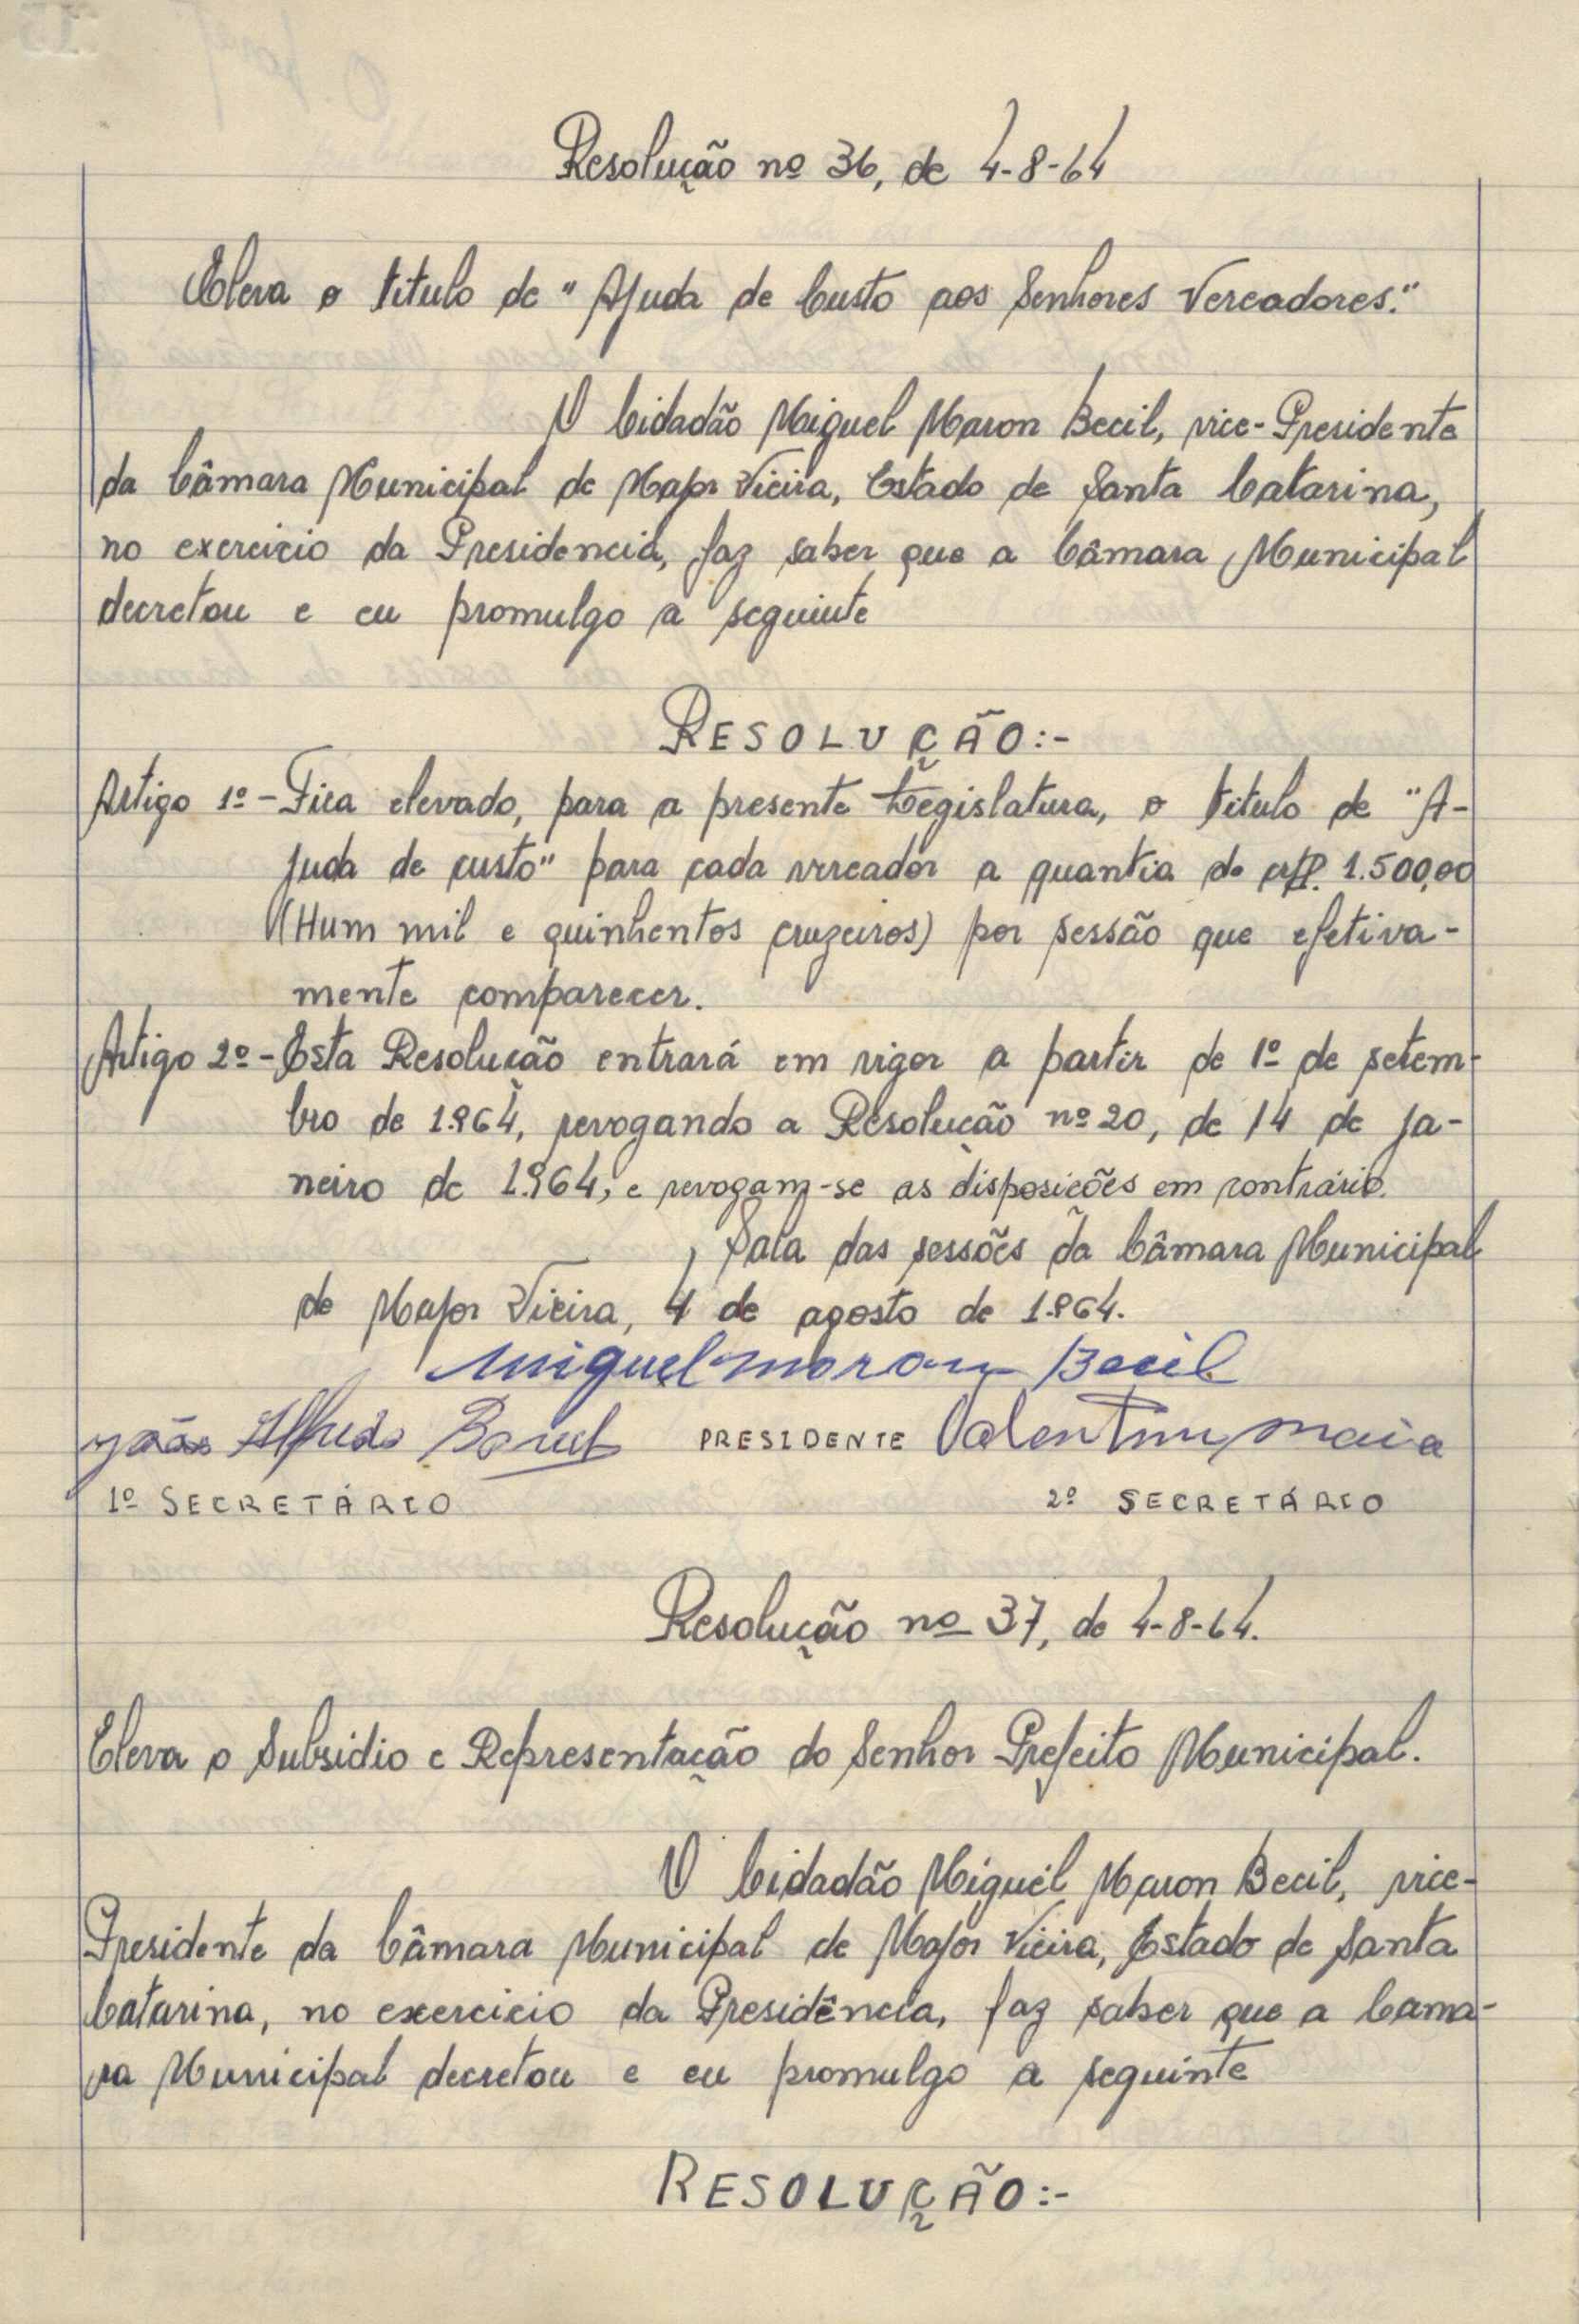 Resolução nº 36, de 4-8-64
Eleva o titulo de "Ajuda de Custo aos Senhores Vereadores."
O Cidadão Miguel Maron Becil, vice-Presidente
da Câmara Municipal de Major Vieira, Estado de Santa Catarina,
no exercicio da Presidencia, faz saber que a Câmara Municipal
decretou e eu promulgo a seguinte
RESOLUÇÃO:-
Artigo 1º - Fica elevado, para a presente Legislatura, o titulo de "A-
juda de custo" para cada vereador a quantia de cr$. 1.500,00
(Hum mil e quinhentos cruzeiros) por sessão que efetiva-
mente comparecer.
Artigo 2º - Esta Resolução entrará em vigor a partir de 1º de setem-
bro de 1.964, revogando a Resolução nº 20, de 14 de ja-
neiro de 1.964, e revogam-se as disposições em contrário.
Sala das sessões da Câmara Municipal
de Major Vieira, 4 de agosto de 1.964.
Miguel Maron Becil
João Alfredo PRESIDENTE Valentim Maia
1º SECRETÁRIO 2º SECRETÁRIO
Resolução nº 37, de 4-8-64.
Eleva o Subsidio e Representação do Senhor Prefeito Municipal.
O Cidadão Miguel Maron Becil, vice-
Presidente da Câmara Municipal de Major Vieira, Estado de Santa
Catarina, no exercicio da Presidência, faz saber que a Cama-
ra Municipal decretou e eu promulgo a seguinte
RESOLUÇÃO:-